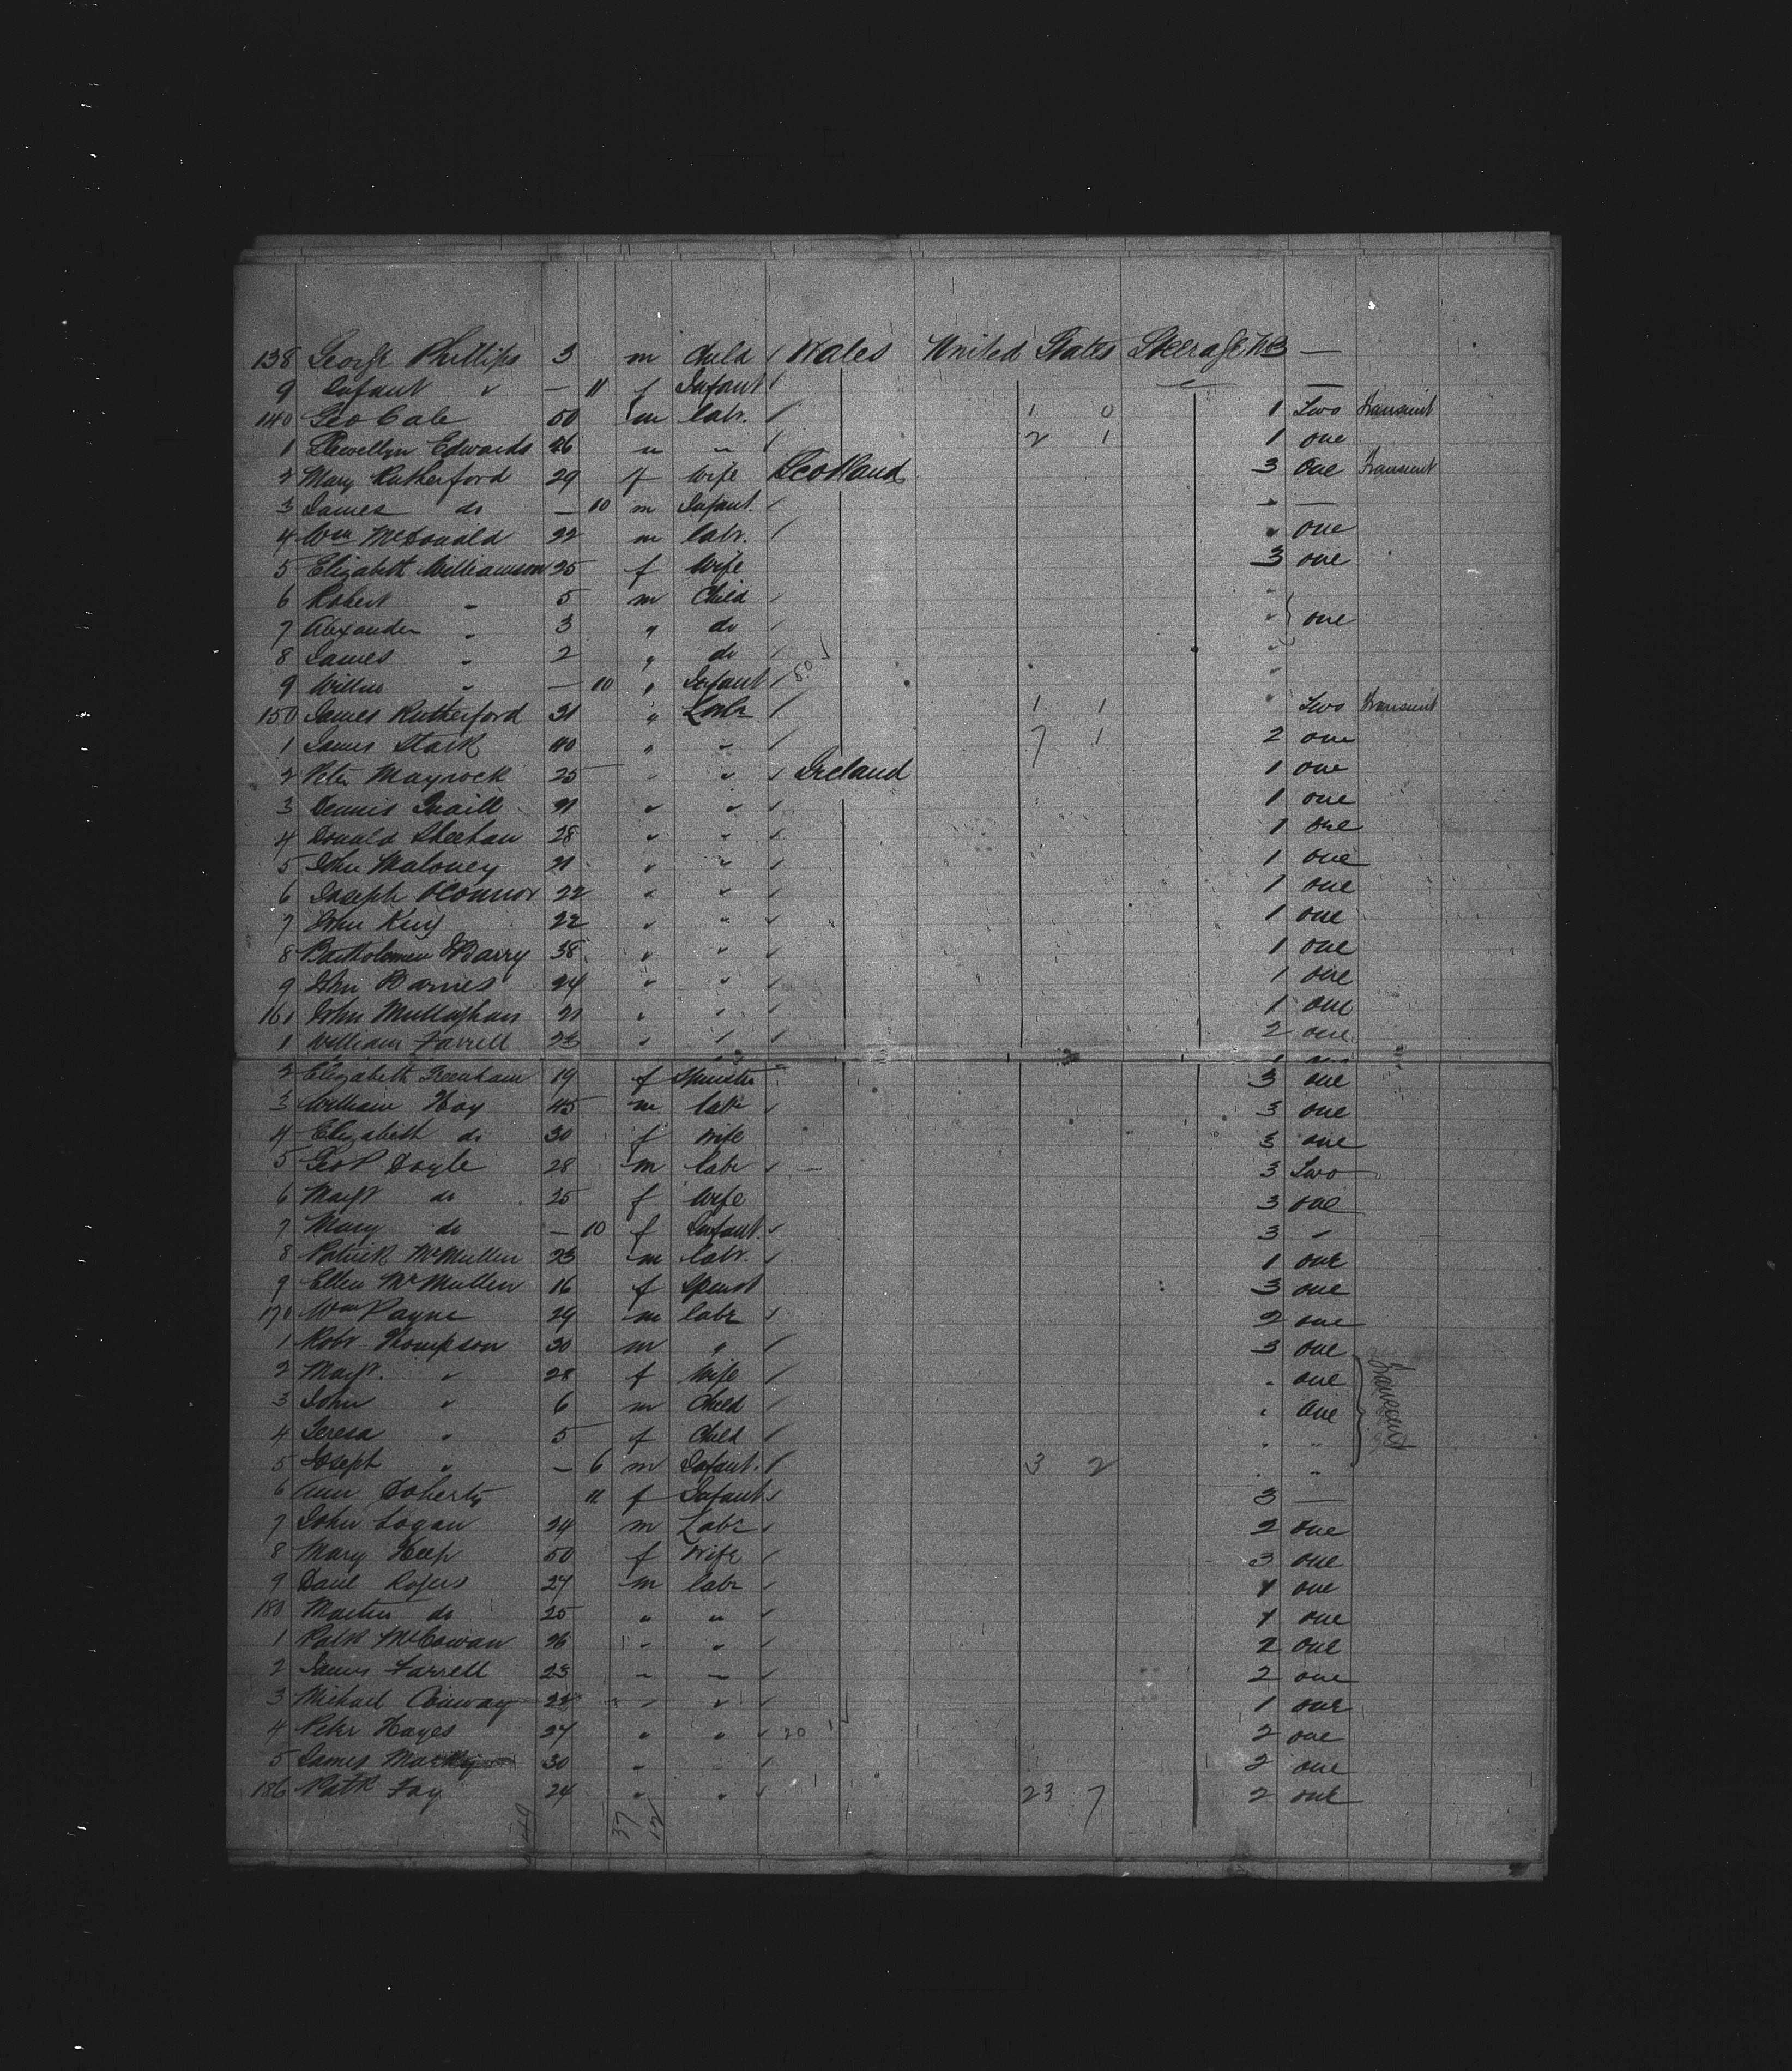 138 George Phillips 3 m Child Wales United States Steerage No3 —
9 Infant " — 11 f Infant —
140 Geo Cale 50 m labr. 1 0 1 Two Transient
1 Llewellyn Edwards 26 " " 2 1 1 one
2 Mary Rutherford 29 f Wife Scotland 3 One Transient
3 James do — 10 m Infant. " —
4 Wm McDonald 22 m labr. " one
5 Elizabeth Williamson 25 f Wife 3 one
6 Robert " 5 m Child "
7 Alexander " 3 " do " one
8 James " 2 " do "
9 " — 10 " Infant "
150 James Rutherford 31 " Labr 1 1 " Two Transient
1 James Stark 40 " " 7 1 2 one
2 Peter 25 " " Ireland 1 one
3 Dennis 21 " " 1 one
4 Donald Sheehan 28 " " 1 one
5 John Maloney 21 " " 1 one
6 Joseph OConnor 22 " " 1 one
7 John King 22 " " 1 one
8 Bartholomew Barry 38 " " 1 one
9 John Barnes 24 " " 1 one
161 John Mullaghan 21 " " 1 one
1 William Farrell 23 " " 2 one
2 Elizabeth 19 f Spinster 3 one
3 William Hoy 45 m labr 3 one
4 Elizabeth do 30 f wife 3 one
5 Geo P Doyle 28 m labr 3 Two
6 Magt do 25 f Wife 3 one
7 Mary do — 10 f Infant. 3 —
8 Patrick McMullen 23 m labr. 1 one
9 Ellen McMullen 16 f Spinst 3 one
170 Wm Payne 29 m labr 2 one
1 Robt Thompson 30 m " 3 one
2 Magt. " 28 f Wife " one
3 John " 6 m Child " One Transient
4 Teresa " 5 f Child " "
5 Joseph " — 6 m Infant. 3 2 " "
6 Ann Doherty 11 f Infant 3 —
7 John Logan 24 m Labr 2 one
8 Mary Heep 50 f Wife 3 one
9 Danl Rogers 27 m labr 1 one
180 Martin do 25 " " 1 one
1 Patk McCowan 26 " " 2 one
2 James Farrell 23 " " 2 one
3 Michael Conway 22 " " 1 one
4 Peter Hayes 27 " " 20 2 one
5 James 30 " " 2 one
186 Patk Fay 24 " " 23 7 2 one
49 37 12